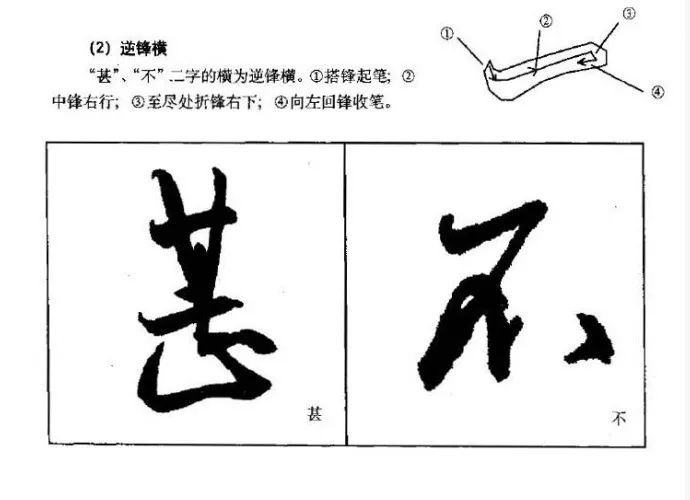 (2) 逆锋横
“甚”、“不”二字的横为逆锋横。①搭锋起笔；②
中锋右行；③至尽处折锋右下；④向左回锋收笔。
① ② ③ ④
甚 不
甚 不